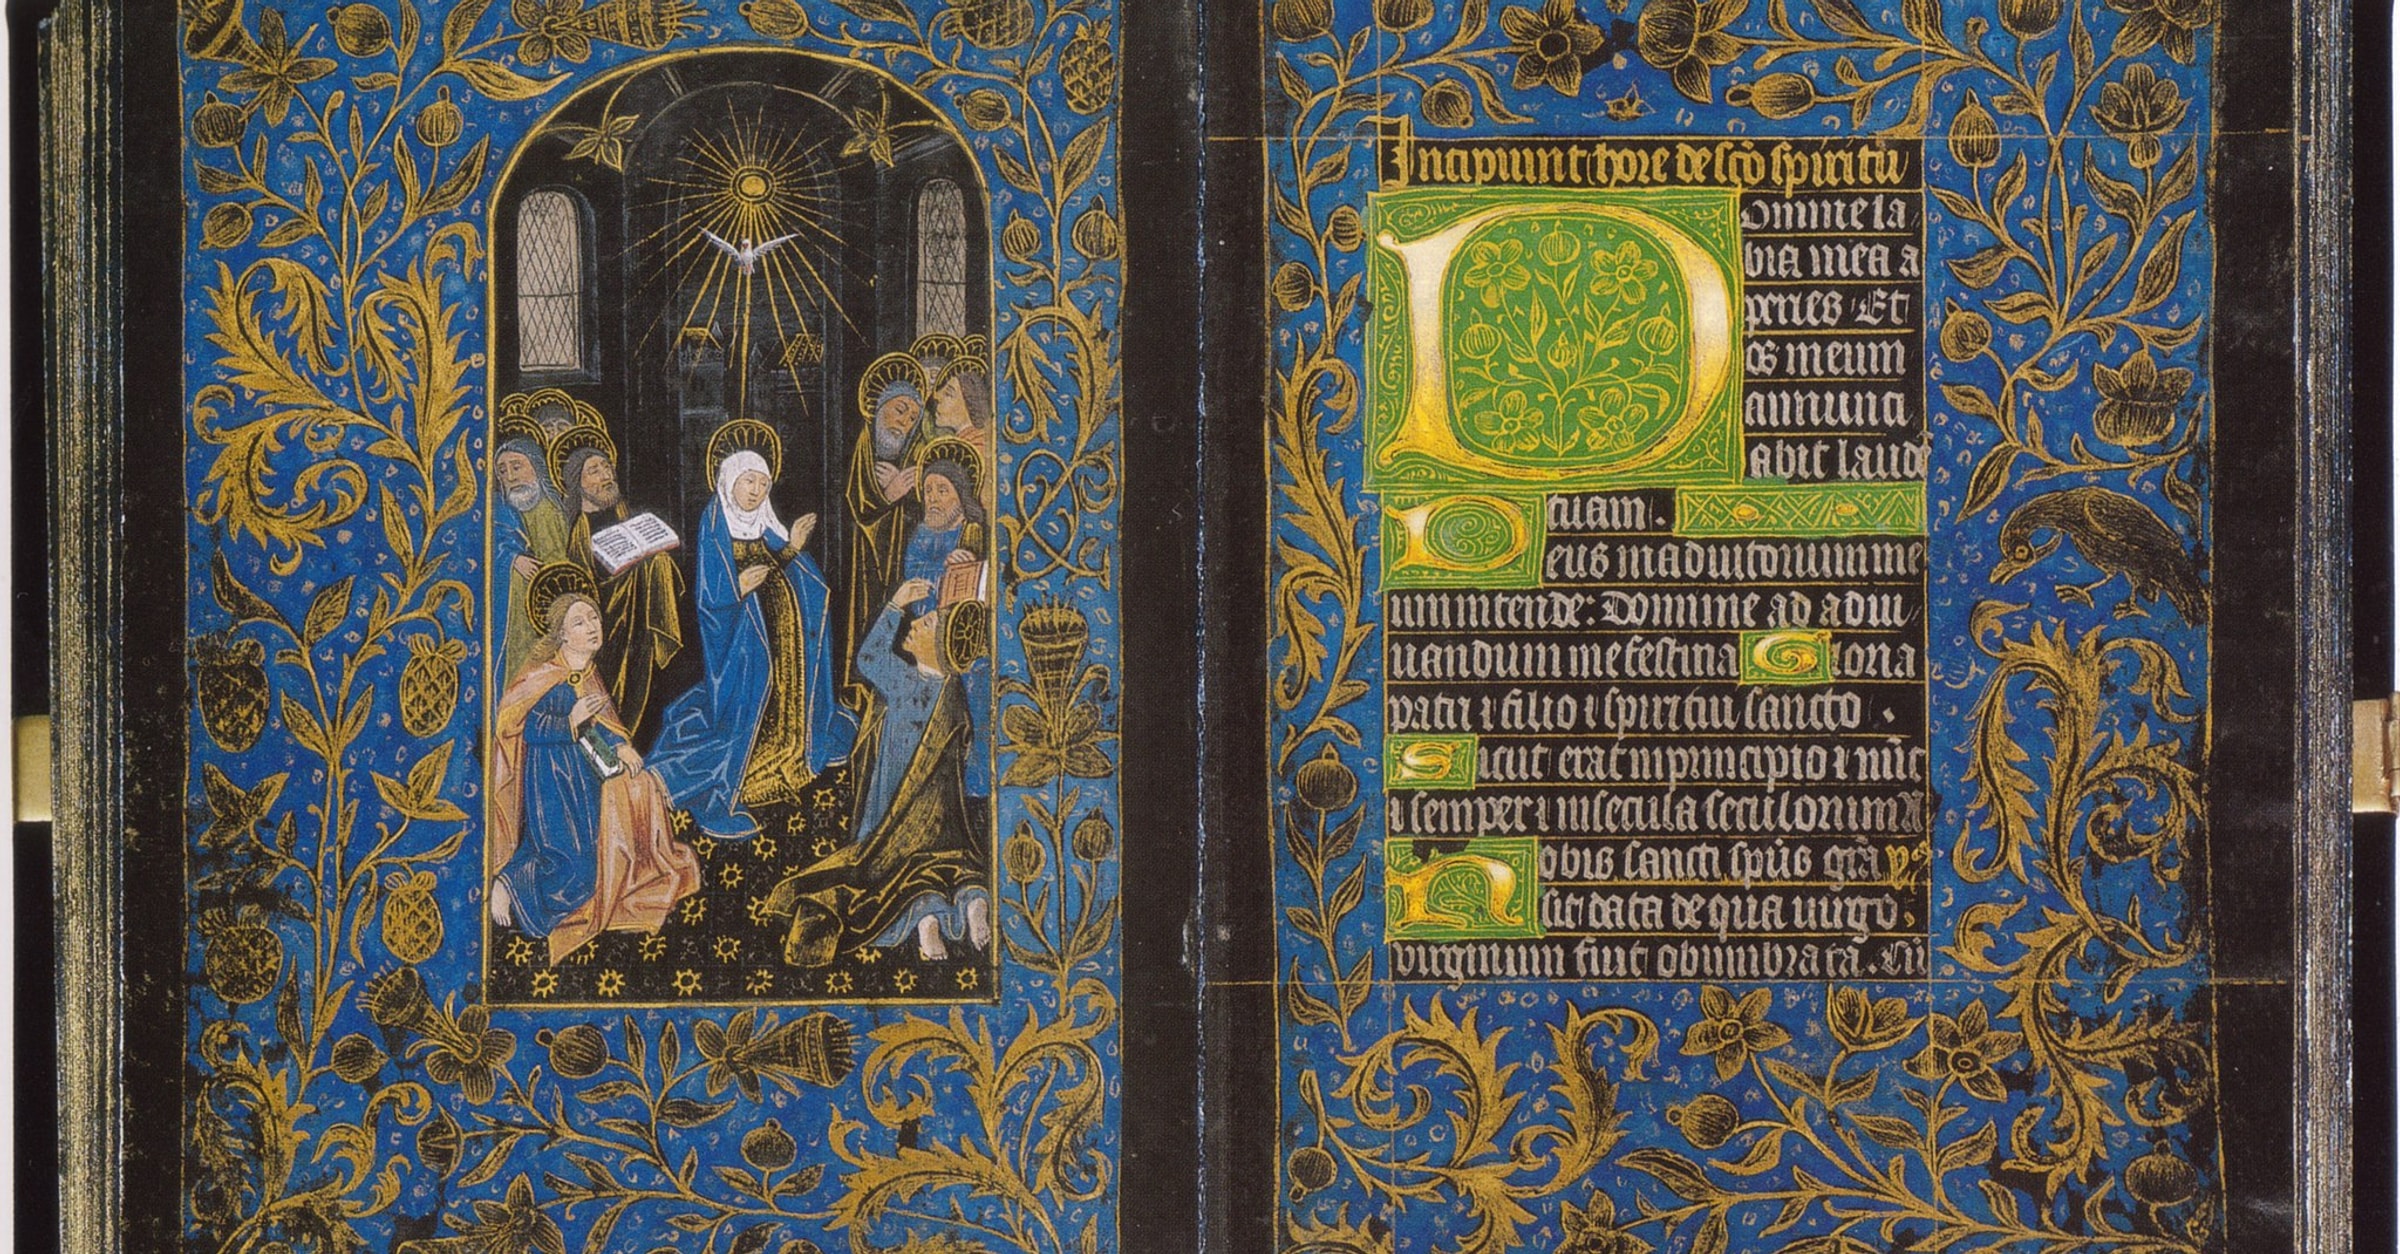 Incipiunt hore de sco spiritu
Domine la
bia mea a
peries Et
os meum
annunci
abit laudē
tuam.
Deus in adiutorium me
um intende: Domine ad adiu
uandum me festina Gloria
patri ⁊ filio ⁊ spiritui sancto.
Sicut erat in principio ⁊ nūc
⁊ semper ⁊ in secula seculorum
Nobis sancti spūs grā
sit data de qua uirgo
virginum fuit obumbrata. Cū